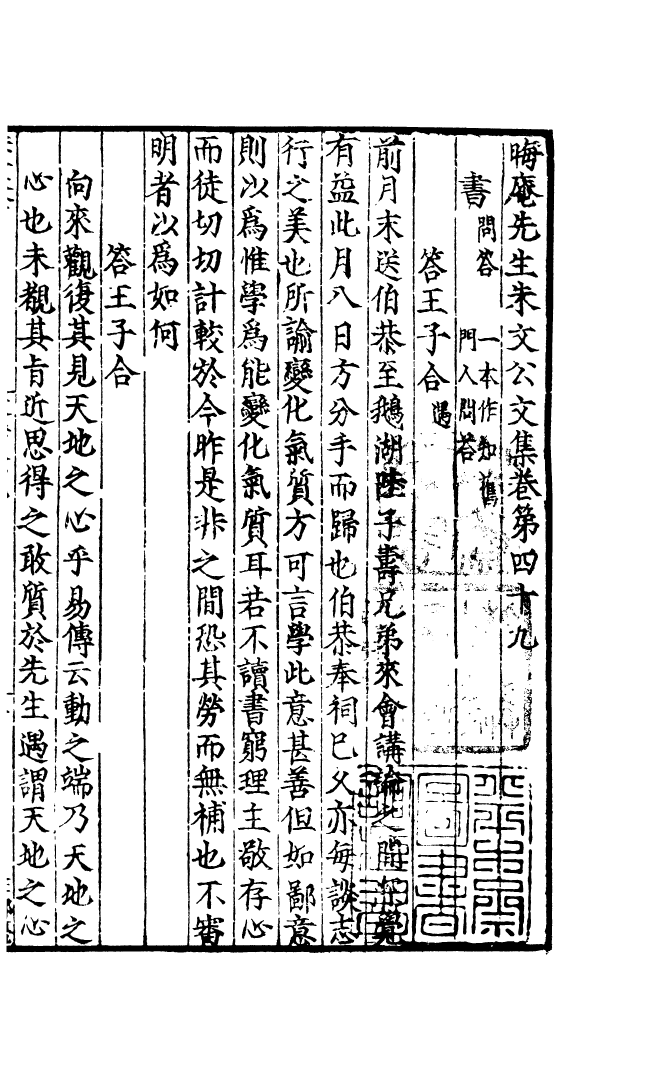 晦庵先生朱文公文集卷第四十九
書 問答 一本作知舊門人問答
答王子合 遇
前月末送伯恭至鵝湖陸子壽兄弟來會講論之間深覺
有益此月八日方分手而歸也伯恭奉祠已久亦每談志
行之美也所諭變化氣質方可言學此意甚善但如鄙意
則以爲惟學爲能變化氣質耳若不讀書窮理主敬存心
而徒切切計較於今昨是非之間恐其勞而無補也不審
明者以爲如何
答王子合
向來觀復其見天地之心乎易傳云動之端乃天地之
心也未覩其旨近思得之敢質於先生遇謂天地之心